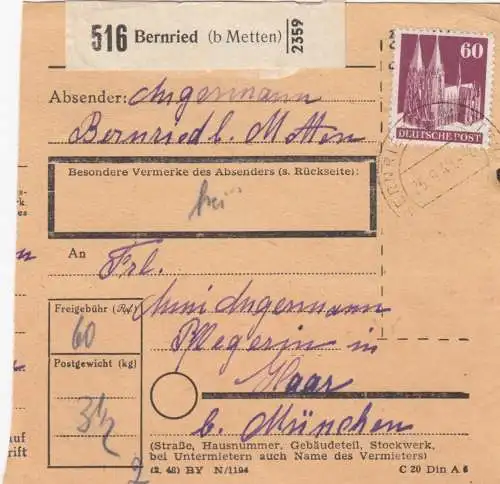 516 Bernried (b Metten) 2359
60
DEUTSCHE POST
Absender: Angermann
Bernried b. Metten
Besondere Vermerke des Absenders (s. Rückseite):
An Frl.
Angermann
Freigebühr (Rpf)
60
Pflegerin in
Postgewicht (kg)
Haar
3½
b. München
(Straße, Hausnummer, Gebäudeteil, Stockwerk,
bei Untermietern auch Name des Vermieters)
2
(2. 48) BY N/1194 C 20 Din A 6